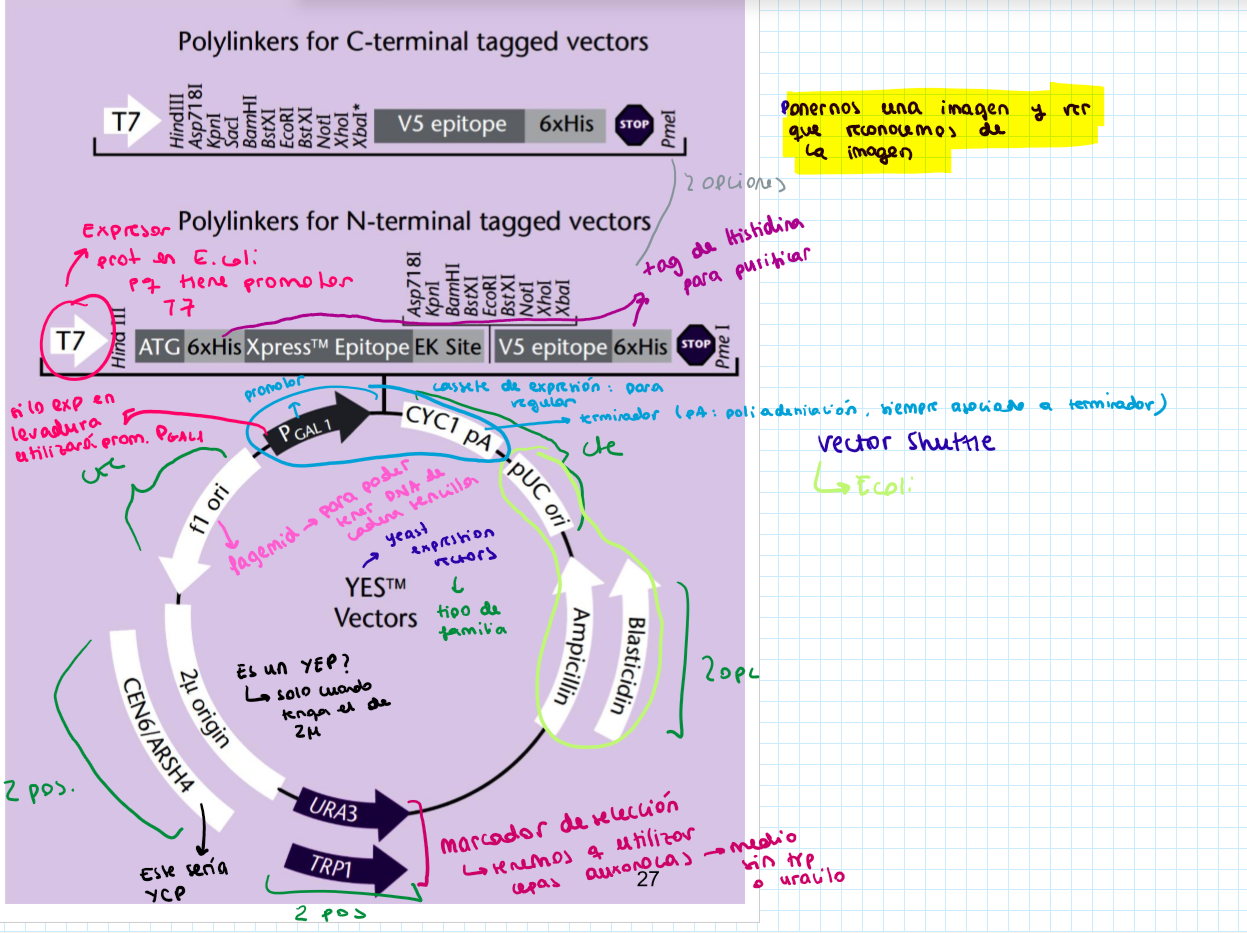 Polylinkers for C-terminal tagged vectors
T7
HindIII
Asp718I
KpnI
SacI
BamHI
BstXI
EcoRI
BstXI
NotI
XhoI
XbaI*
V5 epitope
6xHis
STOP
PmeI
Ponernos una imagen y ver
que reconocemos de
la imagen
2 opciones
Polylinkers for N-terminal tagged vectors
Expresor
prot en E.coli
pq tiene promotor
T7
tag de Histidina
para purificar
Asp718I
KpnI
BamHI
BstXI
EcoRI
BstXI
NotI
XhoI
XbaI
T7
Hind III
ATG
6xHis
Xpress™ Epitope
EK Site
V5 epitope
6xHis
STOP
Pme I
promotor
cassete de expresión: para
regular
terminador (pA: poliadenilación, siempre asociado a terminador)
si lo exp en
levadura
utilizará prom. PGAL1
PGAL 1
CYC1 pA
cte
cte
vector shuttle
Ecoli
pUC ori
f1 ori
fagemid → para poder
tener DNA de
cadena sencilla
yeast
expression
vectors
YES™
Vectors
tipo de
familia
Ampicillin
Blasticidin
2 opc
2μ origin
CEN6/ARSH4
Es un YEP?
solo cuando
tenga el de
2μ
2 pos.
URA3
TRP1
marcador de selección
tenemos q utilizar
cepas auxonocas → medio
sin trp
o uracilo
Este sería
YCP
27
2 pos